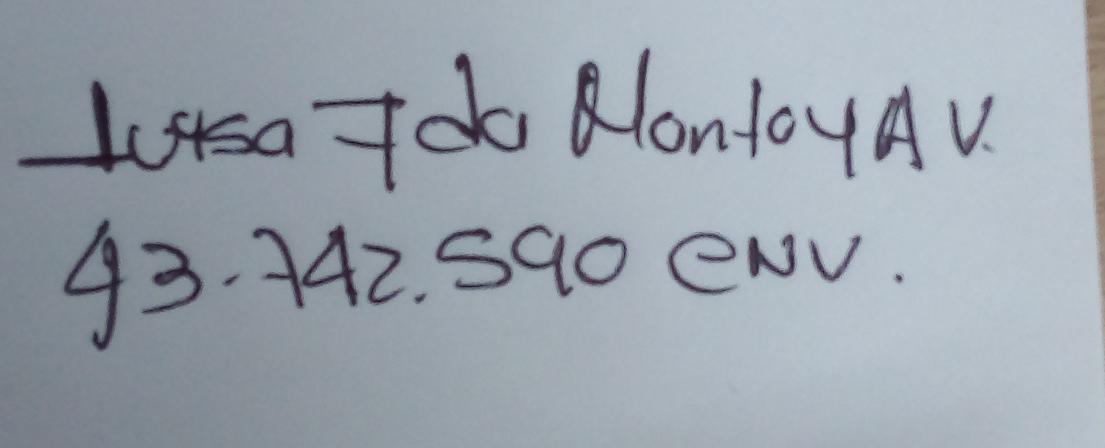 Luisa Fda Montoya V.
43.742.590 env.